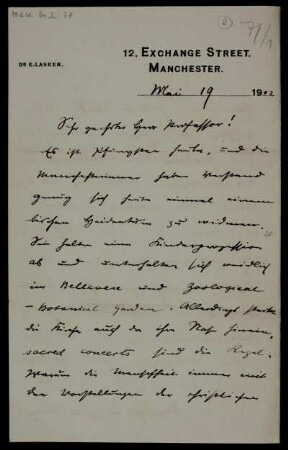 8
71/1
12, EXCHANGE STREET,
DR E. LASKER.
MANCHESTER.
Mai 19 1902
Sehr geehrter Herr Professor!
Es ist Pfingsten heute, und die
Manchesteriner haben Verstand
genug sich heute einmal einem
Heidentum zu widmen.
Sie halten eine Kinderprozession
ab und unterhalten sich weidlich
im Bellevue und Zoological
- Botanical Garden. Allerdings steckt
die Kirche auch da ihre Nase hinein,
sacred concerts sind die Regel.
Warum die Menschheit immer mit
den Vorstellungen der christlichen